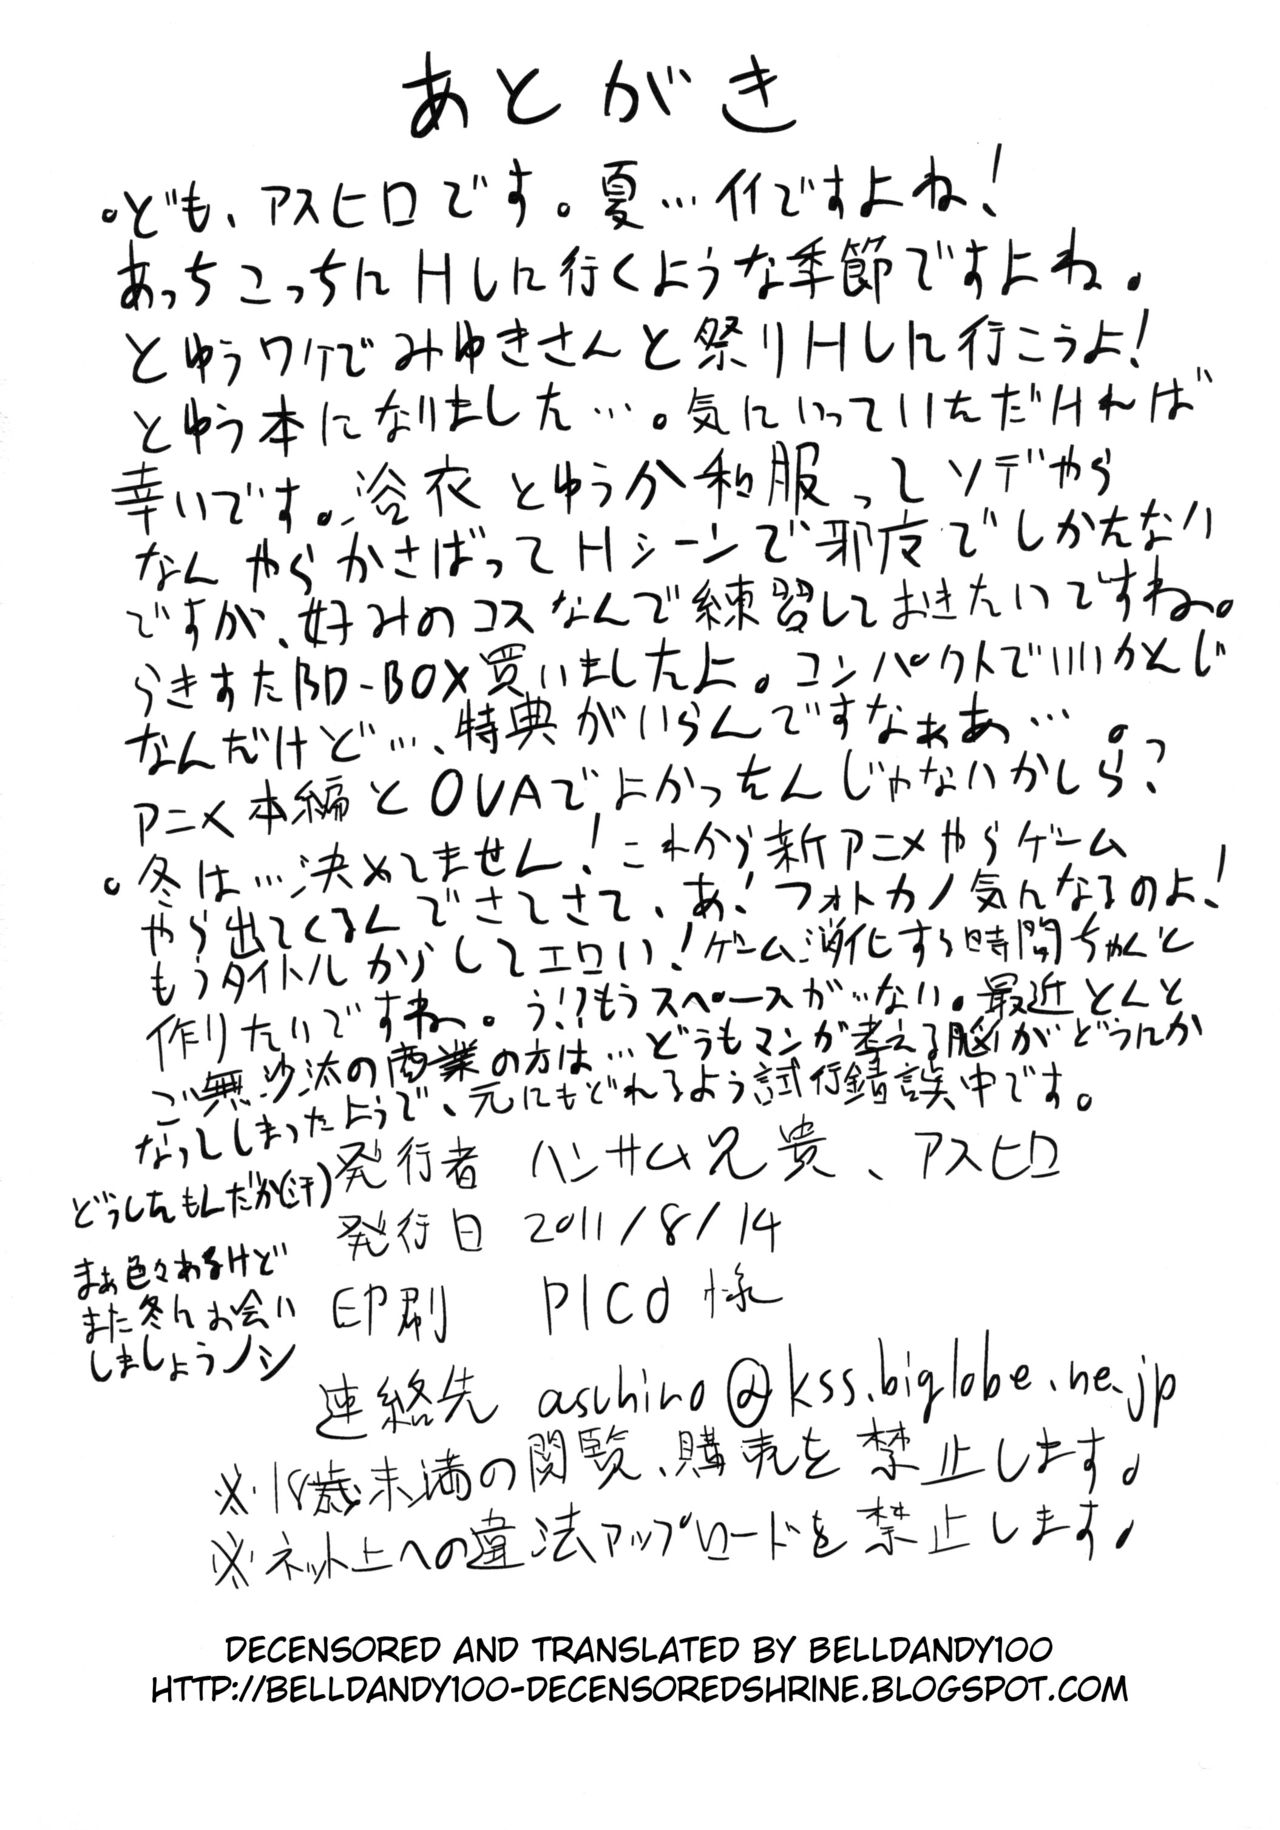 あとがき
。ども、アスヒロです。夏…イイですよね!
あっちこっちにHしに行くような季節ですよね。
とゆうワケでみゆきさんと祭りHしに行こうよ!
とゆう本になりました…。気にいっていただければ
幸いです。浴衣とゆうか和服ってソデやら
なんやらかさばってHシーンで邪魔でしかたない
ですが、好みのコスなんで練習しておきたいですね。
らきすたBD-BOX買いましたよ。コンパクトでいいかんじ
なんだけど…、特典がいらんですなぁあ…。
アニメ本編とOVAでよかったんじゃないかしら?
。冬は…決めてません!これから新アニメやらゲーム
やら出てくるんでさてさて、あ!フォトカノ気んなるのよ!
もうタイトルからしてエロい!ゲーム消化する時間ちゃんと
作りたいですねー。う!?もうスペースがない。最近とんと
ご無沙汰の商業の方は…どうもマンが考える脳がどうにか
なってしまったようで、元にもどれるよう試行錯誤中です。
どうしたもんだか(汗)
まぁ色々あるけど
また冬にお会い
しましょうノシ
発行者 ハンサム兄貴、アスヒロ
発行日 2011/8/14
印刷 PICO様
連絡先 asuhiro@kss.biglobe.ne.jp
※18歳未満の閲覧、購売を禁止します。
※ネット上への違法アップロードを禁止します。
DECENSORED AND TRANSLATED BY BELLDANDY100
HTTP://BELLDANDY100-DECENSOREDSHRINE.BLOGSPOT.COM